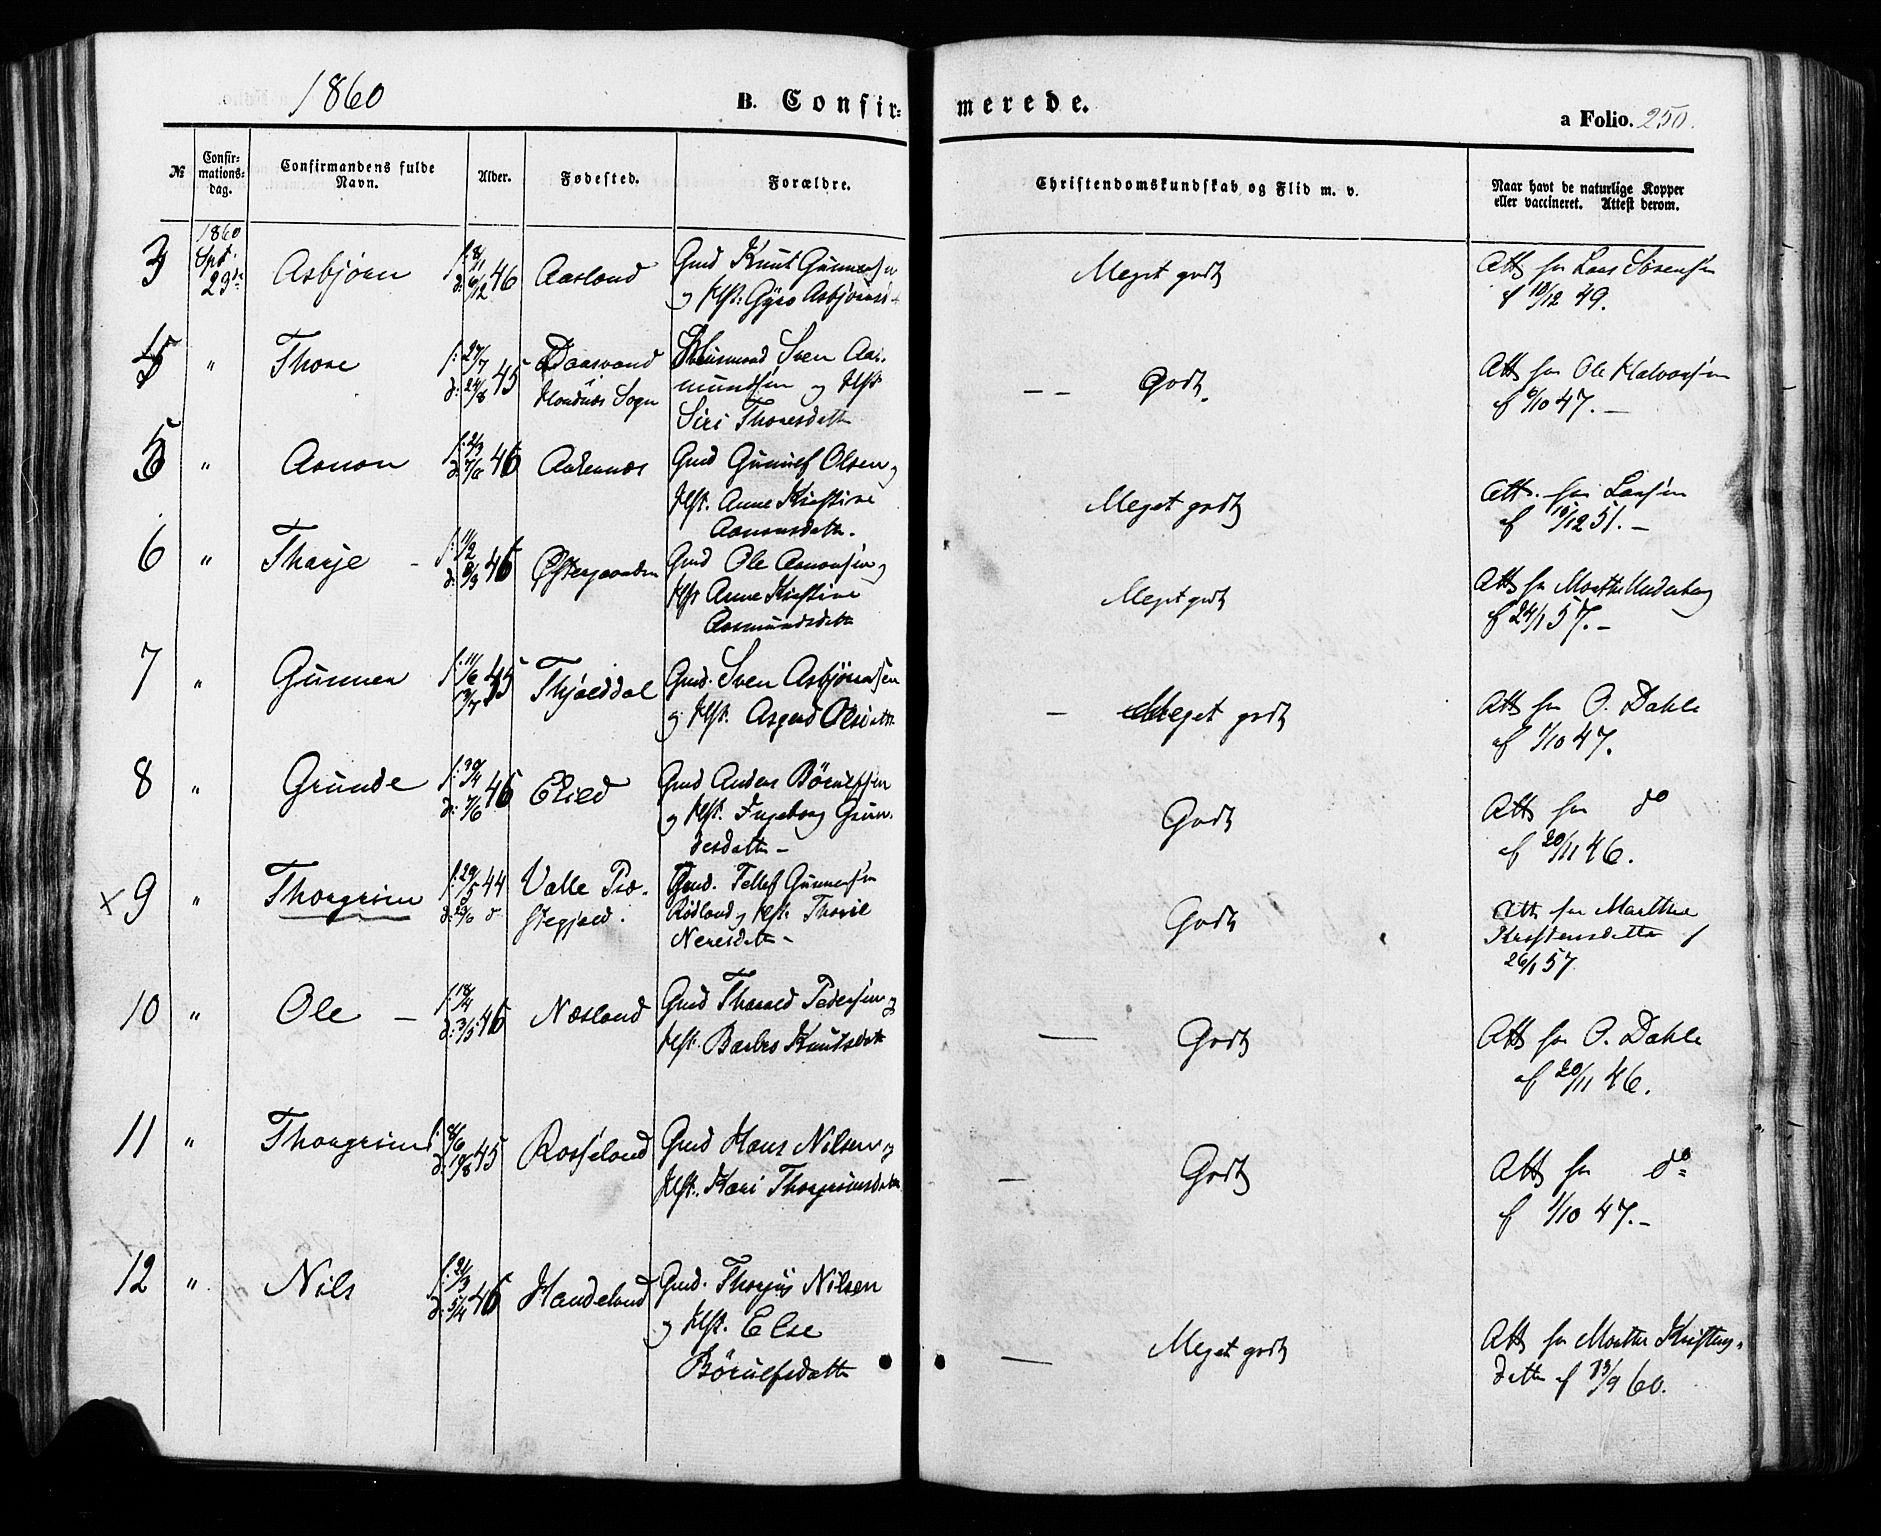 1860
B. Confir= merede.
a Folio. 250.
№ Confir-mations-dag. Confirmandens fulde Navn. Alder. Fødested. Forældre. Christendomskundskab og Flid m. v. Naar havt de naturlige Kopper eller vaccineret. Attest derom.
3 1860 Spt. 29de Asbjørn f: 8/1 d: 6/12 46 Aasland Gmd Knut Gunnersen
og Hst: Gyro Asbjørnsd
Meget godt
Att fra Lars Sørensen
af 10/12 49.
" Thore f: 27/7 d: 24/8 45 Sogn Husmand Sven Aas-
mundsen og Hst
Siri Thoresdatter
Godt.
Att fra Ole Halvorsen
af 10 47. –
5 " Aanon f: 2/3 46 Aakernæs Gmd Gunulf Olsen og
Hst. Anne Kristine
Aanonsdatt.
Meget godt
Att. fra Larsen
af 10/12 51. –
6 " Tharje – f: 11/2 d: 8/3 46 Østergaarden Gmd Ole Aanonsen og
Hst Anne Kristine
Aasmundsdatt
Meget godt
Att fra Marthe Underberg
af 24/1 57. –
7 " Gunner f: 11/6 13/7 45 Gmd. Sven Asbjørnsen
og Hst. Asgerd Olsdatt
– Meget godt
Att fra O. Dahle
af 1/10 47.
8 " Grunde f: 30/4 d: 7/6 46 Gmd Anders Børulfsen
og Hst. Ingeborg Grun-
desdatter –
Godt
Att fra do
af 20/11 46.
× 9 " Thorgrim f: 29/5 44 Valle Præ-
stegjeld. Gmd. Tellef Gunnersen
Rødland og Hst. Thoril
Neresdatt –
Godt
Att fra Marthe
Kristensdatter f
26/1 57.
10 " Ole – f: 18/4 d: 3/5 46 Næsland Gmd Tharald Pedersen og
Hst. Barbro Knutsdatt
— Godt
Att fra O. Dahle
af 20/11 46.
11 " Thorgrim f: 8/6 d: 10/8 45 Rosseland Gmd Hans Nilsen og
Hst. Kari Thorgrimsdatter
– Godt
Att fra do
af 1/10 47. –
12 " Nils f: 21/3 d: 5/4 46 Haadeland Gmd. Thorjus Nilsen
og Hst. Else
Børulfsdatter
— Meget godt
Att fra Marthe Kristens-
datter af 13/9 60.